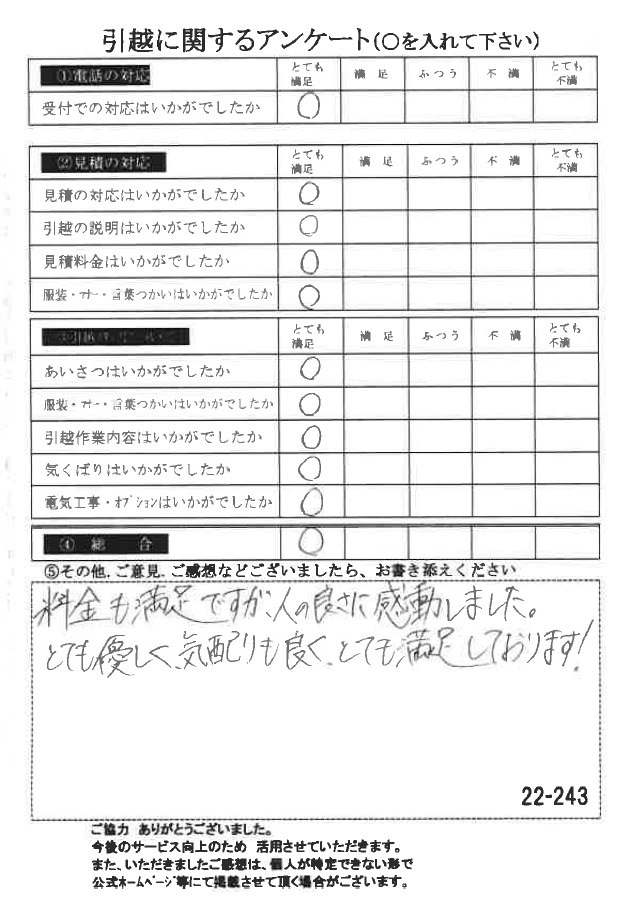 引越に関するアンケート(〇を入れて下さい)
①電話の対応 とても満足 満足 ふつう 不満 とても不満
受付での対応はいかがでしたか 〇
②見積の対応 とても満足 満足 ふつう 不満 とても不満
見積の対応はいかがでしたか 〇
引越の説明はいかがでしたか 〇
見積料金はいかがでしたか 〇
服装・マナー・言葉つかいはいかがでしたか 〇
とても満足 満足 ふつう 不満 とても不満
あいさつはいかがでしたか 〇
服装・マナー・言葉つかいはいかがでしたか 〇
引越作業内容はいかがでしたか 〇
気くばりはいかがでしたか 〇
電気工事・オプションはいかがでしたか 〇
④ 総 合 〇
⑤その他.ご意見.ご感想などございましたら、お書き添えください
料金も満足ですが、人の良さに感動しました。
とても優しく、気配りも良く、とても満足しております!
22-243
ご協力 ありがとうございました。
今後のサービス向上のため 活用させていただきます。
また、いただきましたご感想は、個人が特定できない形で
公式ホームページ等にて掲載させて頂く場合がございます。